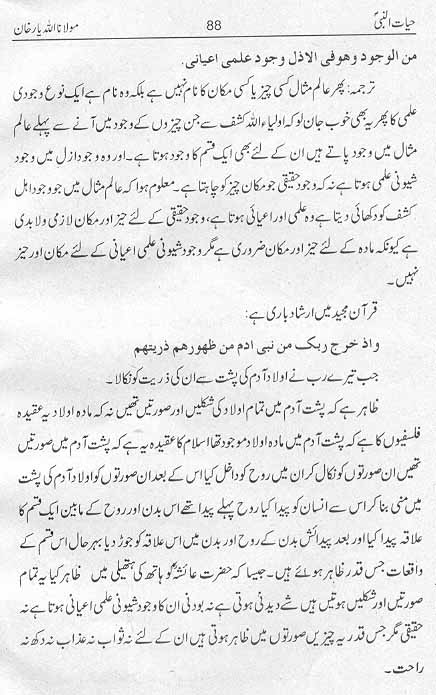 حیات النبیؐ 88 مولانا اللہ یار خان
من الوجود وھو فی الاذل وجود علمی اعیانی.
ترجمہ: پھر عالم مثال کسی چیز یا کسی مکان کا نام نہیں ہے بلکہ وہ نام ہے ایک نوع وجودی
علمی کا پھر یہ بھی خوب جان لو کہ اولیاء اللہ کشف سے جن چیزوں کے وجود میں آنے سے پہلے عالم
مثال میں وجود پاتے ہیں ان کے لئے بھی ایک قسم کا وجود ہوتا ہے۔ اور وہ وجود ازل میں وجود
شیونی علمی ہوتا ہے نہ کہ وجود حقیقی جو مکان چیز کو چاہتا ہے۔ معلوم ہوا کہ عالم مثال میں جو وجود اہل
کشف کو دکھائی دیتا ہے وہ علمی اور اعیانی ہوتا ہے، وجود حقیقی کے لئے حیز اور مکان لازمی ولابدی
ہے کیونکہ مادہ کے لئے حیز اور مکان ضروری ہے مگر وجود شیونی علمی اعیانی کے لئے مکان اور حیز
نہیں۔
قرآن مجید میں ارشاد باری ہے:
واذ خرج ربک من نبی ادم من ظھورھم ذریتھم
جب تیرے رب نے اولاد آدم کی پشت سے ان کی ذریت کو نکالا۔
ظاہر ہے کہ پشت آدم میں تمام اولاد کی شکلیں اور صورتیں تھیں نہ کہ مادہ اولاد یہ عقیدہ
فلسفیوں کا ہے کہ پشت آدم میں مادہ اولاد موجود تھا اسلام کا عقیدہ یہ ہے کہ پشت آدم میں صورتیں
تھیں ان صورتوں کو نکال کر ان میں روح کو داخل کیا اس کے بعد ان صورتوں کو اولاد آدم کی پشت
میں منی بنا کر اس سے انسان کو پیدا کیا روح پہلے پیدا تھے اس بدن اور روح کے مابین ایک قسم کا
علاقہ پیدا کیا اور بعد پیدائش بدن کے روح اور بدن میں اس علاقہ کو جوڑ دیا بہرحال اس قسم کے
واقعات جس قدر ظاہر ہوئے ہیں۔ جیسا کہ حضرت عائشہؓ کو ہاتھ کی ہتھیلی میں ظاہر کیا یہ تمام
صورتیں اور شکلیں ہوتیں ہیں شے دیدنی ہوتی ہے نہ بودنی ان کا وجود شیونی علمی اعیانی ہوتا ہے نہ
حقیقی مگر جس قدر یہ چیزیں صورتوں میں ظاہر ہوتی ہیں ان کے لئے نہ ثواب نہ عذاب نہ دکھ نہ
راحت۔